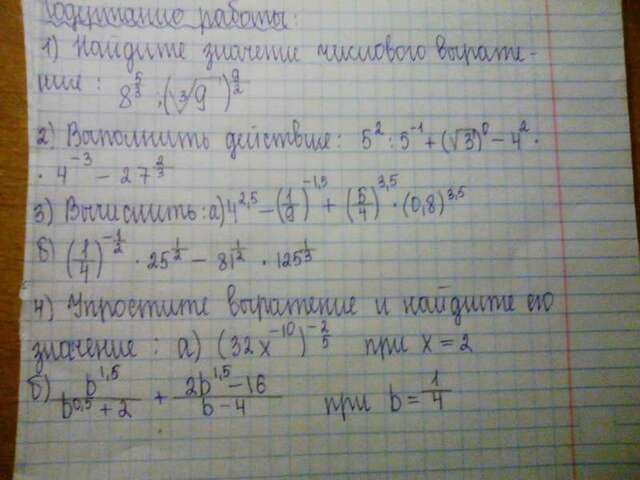 Содержание работы:
1) Найдите значение числового выраже-
ния: 8^{5/3} : (∛9)^{9/2}
2) Выполнить действие: 5^2 : 5^{-1} + (√3)^0 - 4^2 ·
· 4^{-3} - 27^{2/3}
3) Вычислить: а) 4^{2,5} - (1/9)^{-1,5} + (5/4)^{3,5} · (0,8)^{3,5}
б) (1/4)^{-1/2} · 25^{1/2} - 81^{1/2} · 125^{1/3}
4) Упростите выражение и найдите его
значение: а) (32x^{-10})^{-2/5} при x = 2
б) b^{1,5}/(b^{0,5} + 2) + (2b^{1,5} - 16)/(b - 4) при b = 1/4